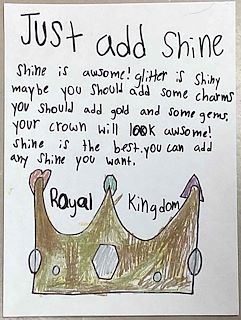 Just add Shine
Shine is awsome! glitter is shiny
maybe you should add some charms
you should add gold and some gems.
your crown will look awsome!
Shine is the best. you can add
any shine you want.
Royal Kingdom